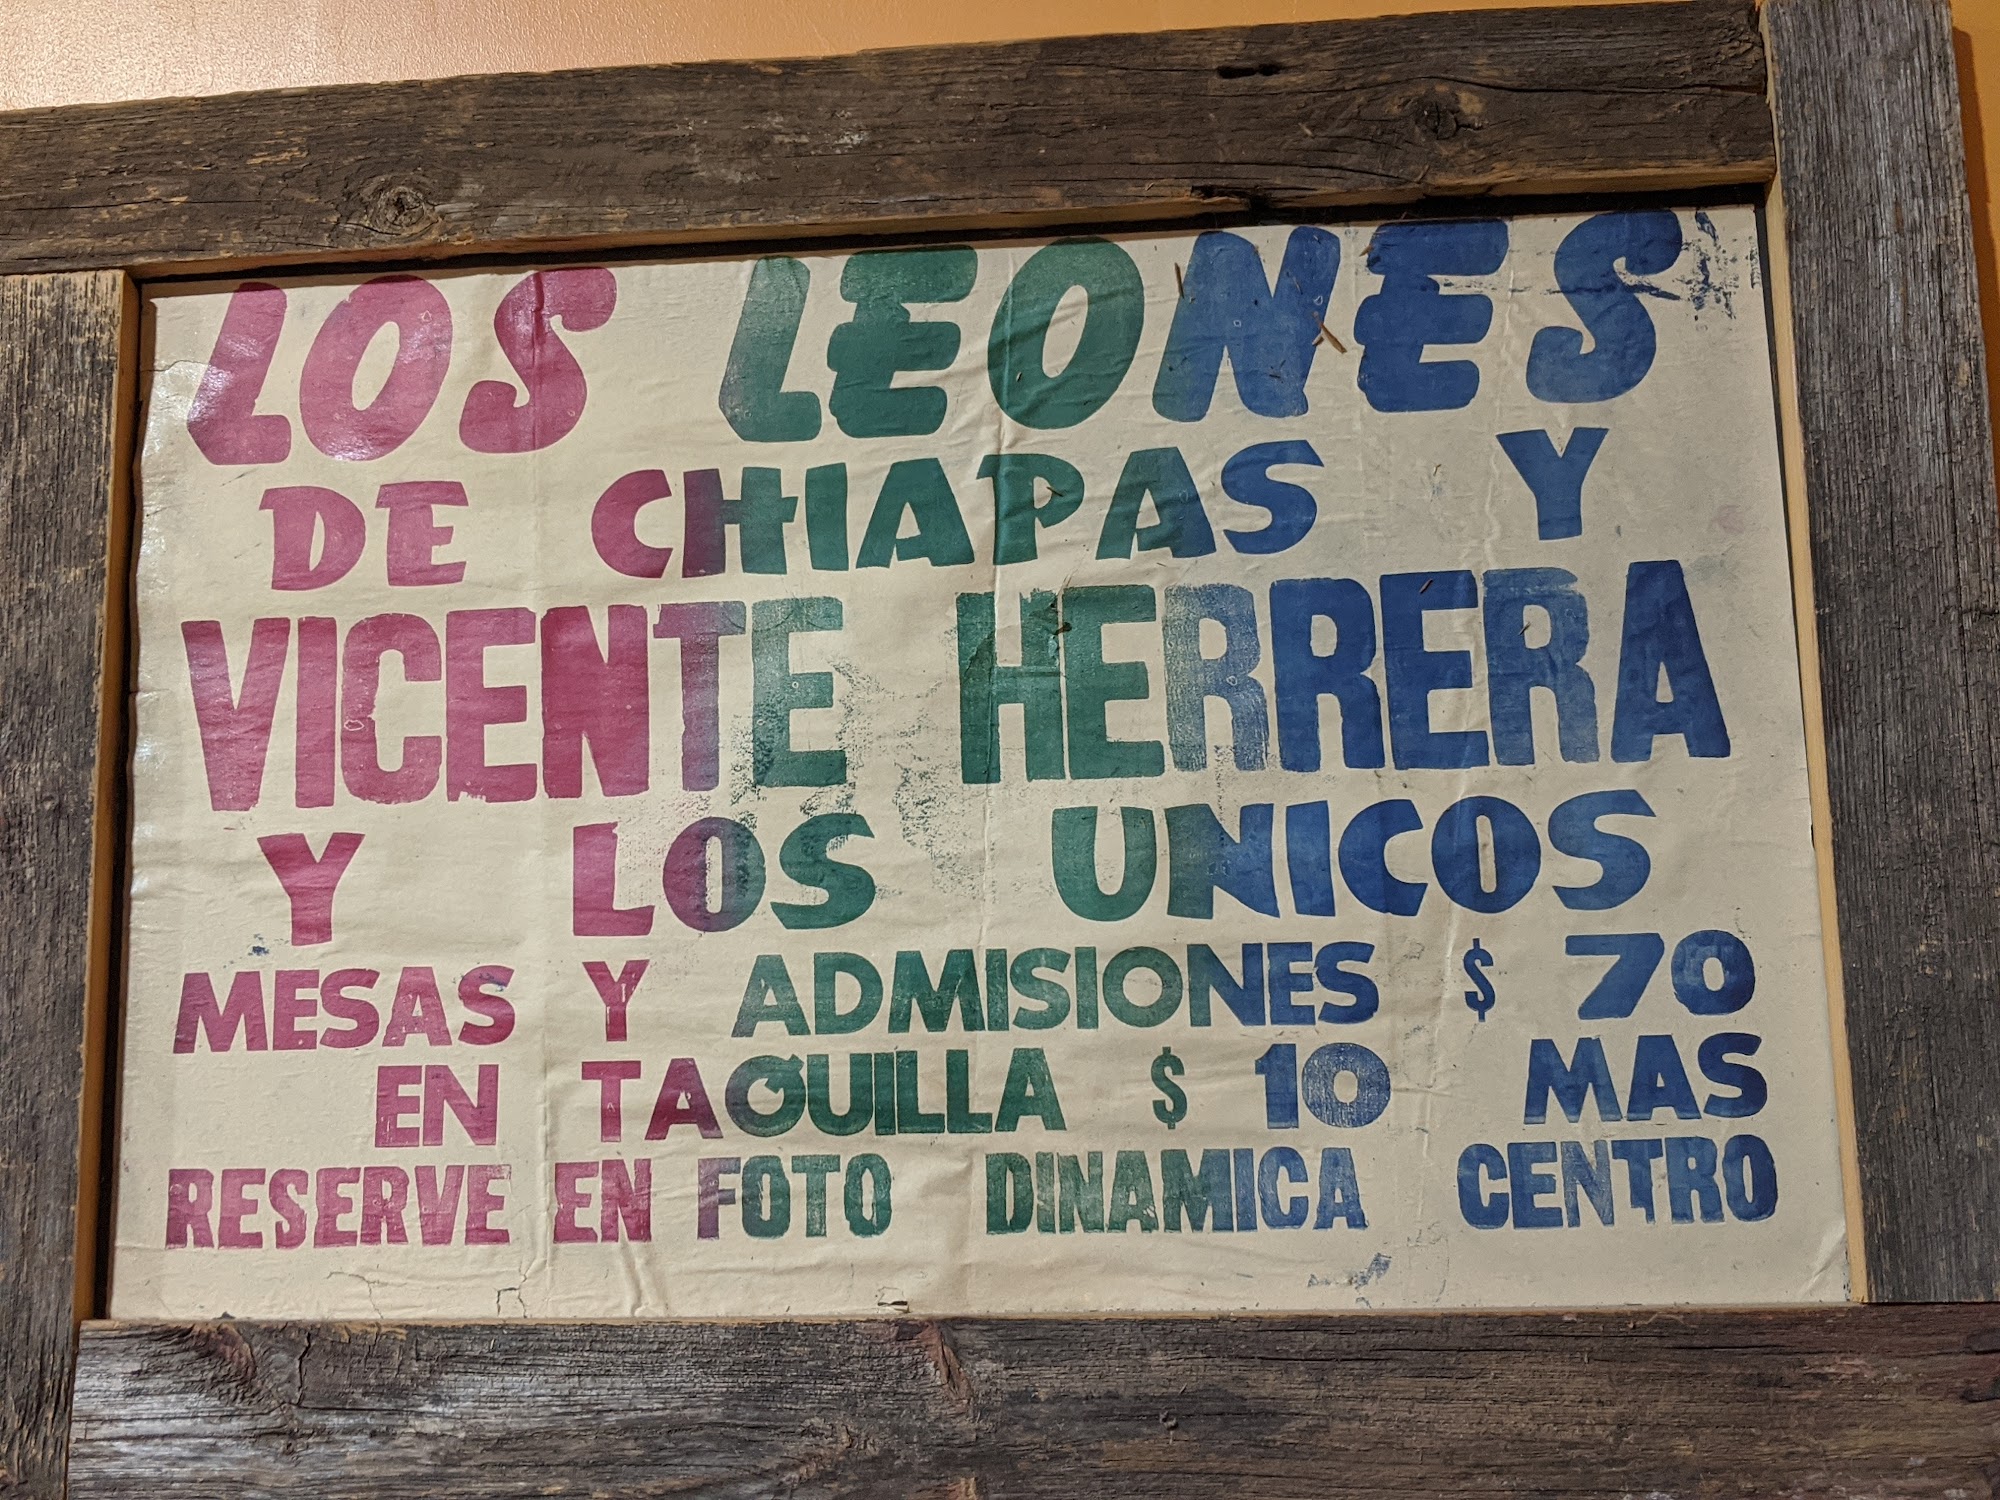 LOS LEONES
DE CHIAPAS Y
VICENTE HERRERA
Y LOS UNICOS
MESAS Y ADMISIONES $ 70
EN TAQUILLA $ 10 MAS
RESERVE EN FOTO DINAMICA CENTRO